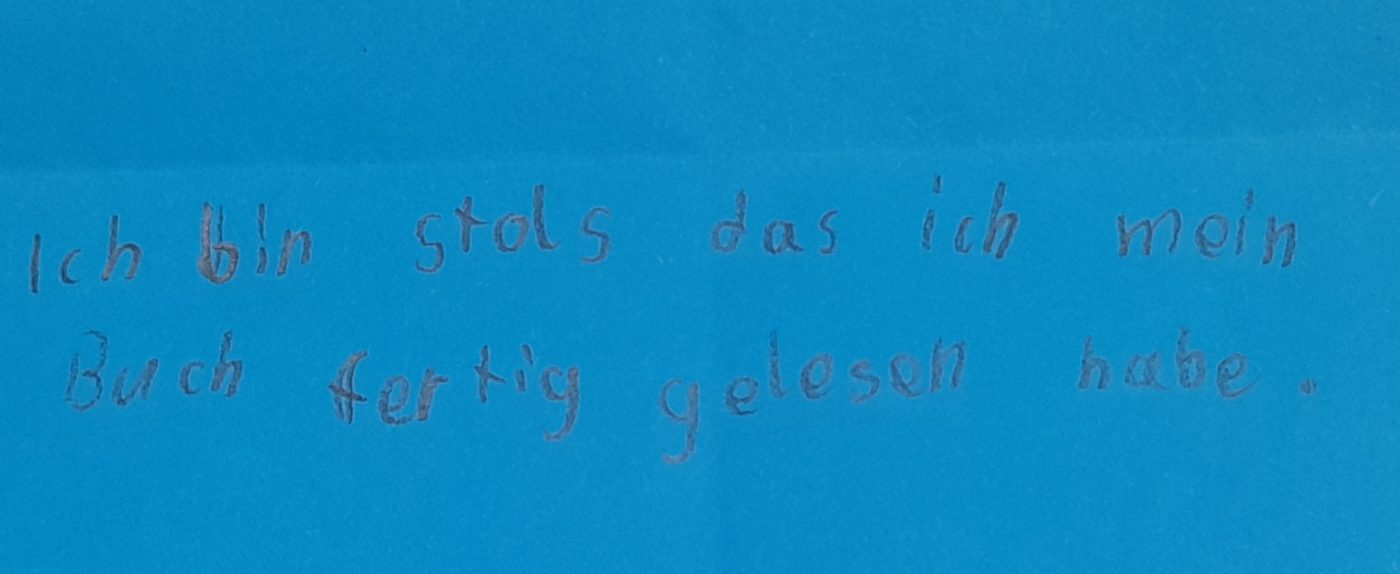 Ich bin stols das ich mein
Buch fertig gelesen habe.